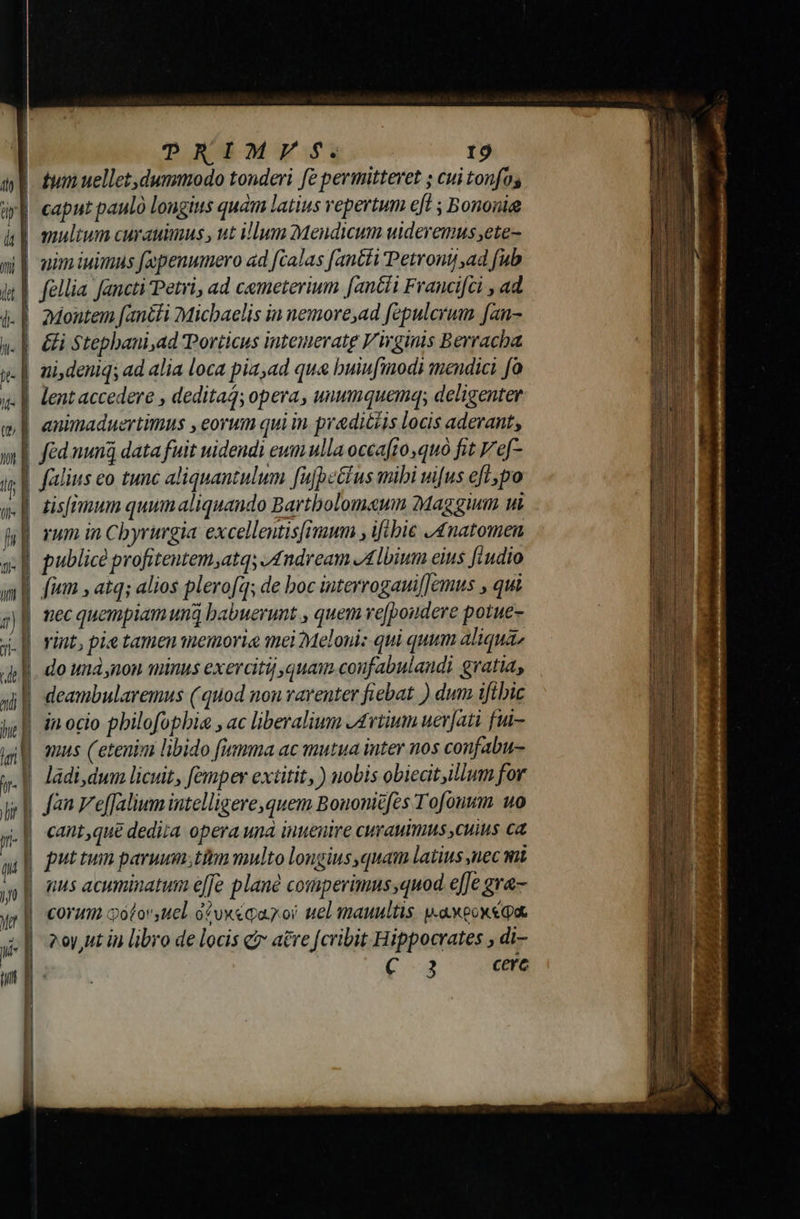 PRIMVS. 19
tum uellet,dummodo tonderi ſe permitteret ; cui tonſo,
caput paulò longius quàm latius repertum eſt ; Bononiæ
multum curauimus, ut illum Mendicum uideremus,ete-
nim iuimus ſæpenumero ad ſcalas ſancti Petronij,ad ſub
ſellia ſancti Petri, ad cæmeterium ſancti Franciſci , ad
Montem ſancti Michaelis in nemore,ad ſepulcrum ſan-
cti Stephani,ad Porticus intemeratę Virginis Berracha
ni,deniq; ad alia loca pia,ad quæ huiuſmodi mendici ſo
lent accedere , deditaq́; opera, unumquemq; deligenter
animaduertimus , eorum qui in prædictis locis aderant,
ſed nunq̃ data fuit uidendi eum ulla occaſio,quò fit Veſ-
ſalius eo tunc aliquantulum ſuſpectus mihi uiſus eſt,po
tisſimum quum aliquando Bartholomæum Maggium ui
rum in Chyrurgia excellentisſimum , iſthic Anatomen
publicè profitentem,atq; Andream Albium eius ſtudio
ſum , atq; alios pleroſq; de hoc interrogauiſſemus , qui
nec quempiam unq̃ habuerunt , quem reſpondere potue-
rint, piæ tamen memoriæ mei Meloni: qui quum aliquã-
do unà,non minus exercitij,quam confabulandi gratia,
deambularemus ( quod non rarenter fiebat ) dum iſthic
in ocio philoſophiæ , ac liberalium Artium uerſati fui-
mus (etenim libido ſumma ac mutua inter nos confabu-
lãdi,dum licuit, ſemper extitit, ) nobis obiecit,illum for
ſan Veſſalium intelligere,quem Bononiẽſes Toſonum uo
cant,quẽ dedita opera unà inuenire curauimus,cuius ca
put tum paruum,tùm multo longius,quam latius,nec mi
nus acuminatum eſſe planè comperimus,quod eſſe græ-
corum φοξον,uel ὀξυκέφαλοι uel mauultis μακροκέφα
λον,ut in libro de locis & aëre ſcribit Hippocrates , di-
C 3 cere